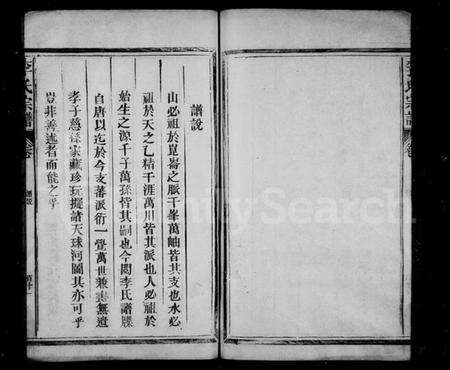 譜說
山必祖於崑崙之脈千峯萬岫皆其支也水必
祖於天之乙精千涯萬川皆其派也人必祖於
始生之源千子萬孫皆其嗣也今閱李氏譜牒
自唐以迄於今支蕃派衍一覽萬世兼無遺
孝子慈孫家藏珍玩擬諸天球河圖其亦可乎
豈非善述者而能之乎
李氏宗譜
卷
譜說
李氏宗譜
卷
FamilySearch